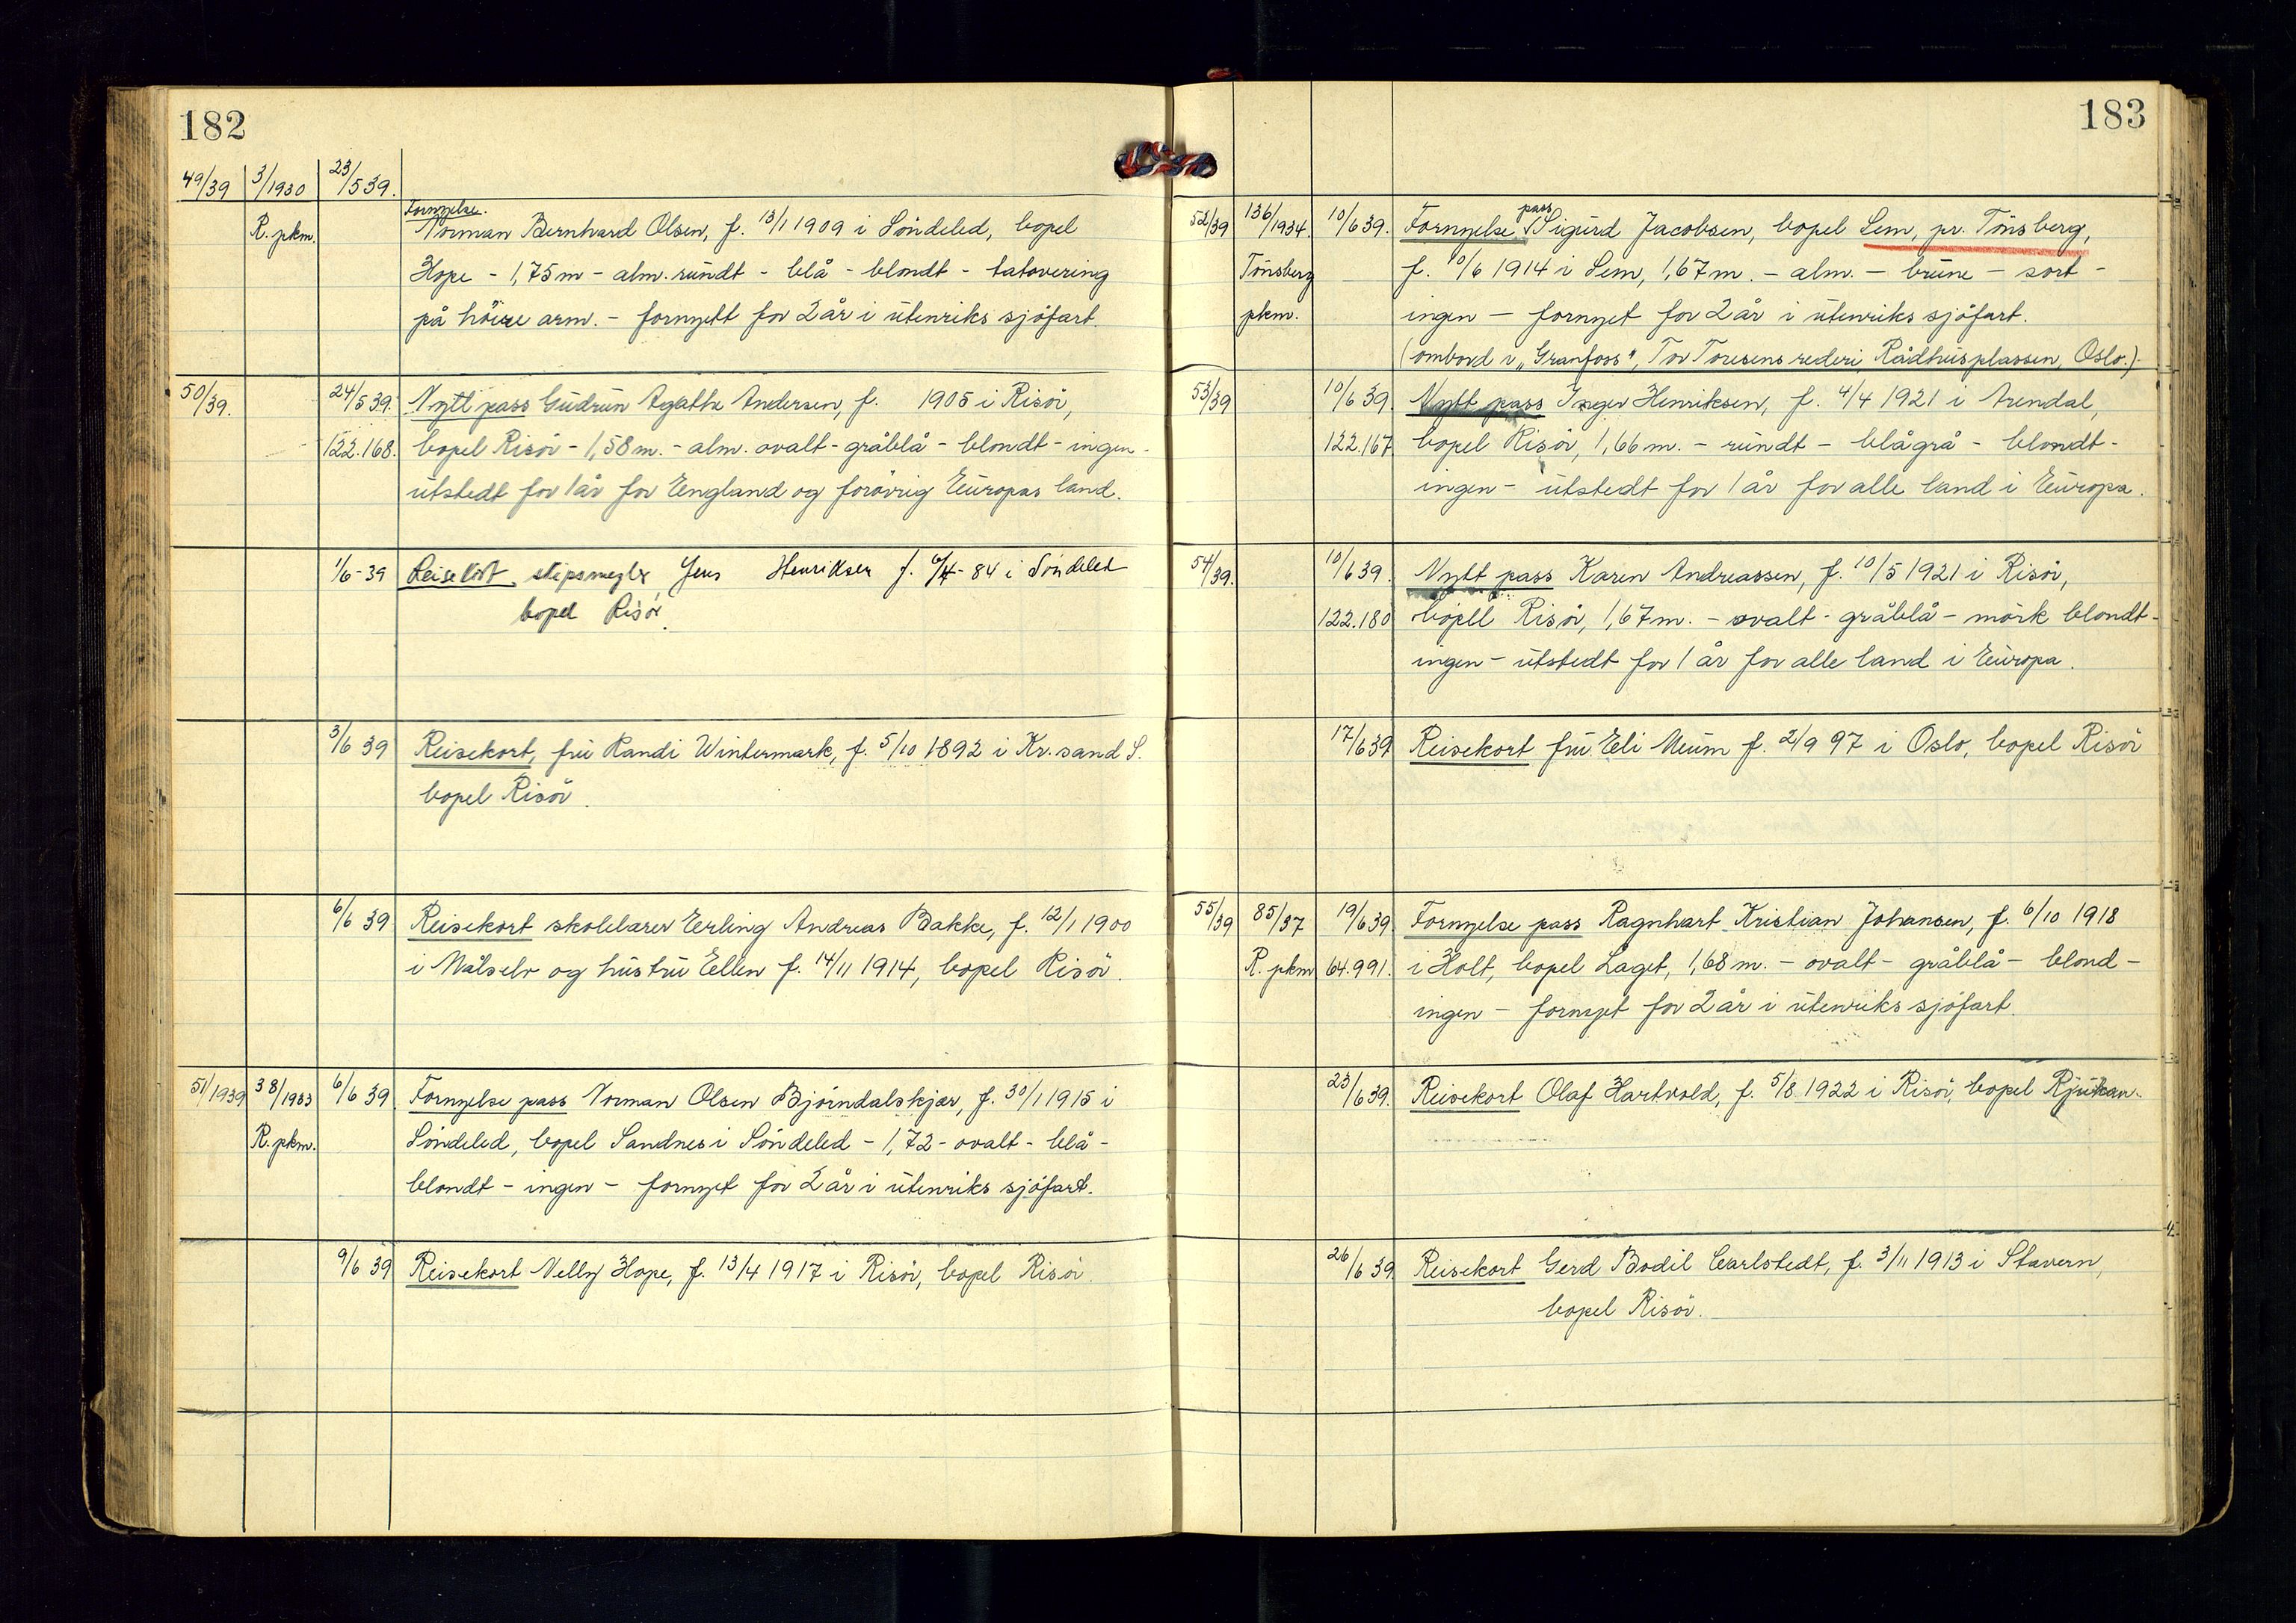 182
49/39 3/1930 23/5 39.
Fornyelse.
R. pkm. Norman Bernhard Olsen, f. 13/1 1909 i Söndeled, bopel
Hope - 1,75 m - alm. rundt - blå - blondt - tatovering
på höire arm. - fornyett for 2 år i utenriks sjöfart.
50/39. 24/5 39. Nytt pass Gudrun Agathe Andersen, f. 1905 i Risör,
122.168. bopel Risör - 1,58 m. - alm. ovalt - gråblå - blondt - ingen -
utstedt for 1 år for England og forövrig Europas land.
1/6-39 Reisekort skipsmegler Jens Henriksen f. - 84 i Söndeled
bopel Risör.
3/6 39 Reisekort, fru Randi Wintermark, f. 5/10 1892 i Kr.sand S.
bopel Risör.
6/6 39 Reisekort skolelærer Erling Andreas Bakke, f. 12/1 1900
i Målselv og hustru Ellen f. 14/11 1914, bopel Risör.
51/1939 38/1933 6/6 39. Fornyelse pass Norman Olsen Bjørndalskjær, f. 30/1 1915 i
R. pkm. Söndeled, bopel Sandnes i Söndeled - 1,72 - ovalt - blå -
blondt - ingen - fornyet for 2 år i utenriks sjöfart.
9/6 39 Reisekort Nelly Hope, f. 13/4 1917 i Risör, bopel Risör.
183
pass
52/39 136/1934. 10/6 39. Fornyelse Sigurd Jacobsen, bopel Sem, pr. Tönsberg,
Tönsberg f. 10/6 1914 i Sem, 1,67 m. - alm. - brune - sort -
pkm. ingen - fornyet for 2 år i utenriks sjöfart.
(ombord i "Granfoss", Tor Toresens rederi Rådhusplassen, Oslo.)
53/39 10/6 39. Nytt pass Inger Henriksen, f. 4/4 1921 i Arendal,
122.167 bopel Risör, 1,66 m. - rundt - blågrå - blondt -
ingen - utstedt for 1 år for alle land i Europa.
54/39. 10/6 39. Nytt pass Karen Andreassen, f. 10/5 1921 i Risör,
122.180 bopel Risör, 1,67 m. - ovalt - gråblå - mörk blondt -
ingen - utstedt for 1 år for alle land i Europa.
17/6 39 Reisekort fru Eli Muum f. 2/9 97 i Oslo, bopel Risör
55/39 85/37 19/6 39 Fornyelse pass Ragnhart Kristian Johansen, f. 6/10 1918
R. pkm 64.991. i Holt, bopel Laget, 1,68 m. - ovalt - gråblå - blond -
ingen - fornyet for 2 år i utenriks sjöfart.
23/6 39. Reisekort Olaf Hartvold, f. 5/8 1922 i Risör, bopel Rjukan.
26/6 39 Reisekort Gerd Bodil Carlstedt, f. 3/11 1913 i Stavern,
bopel Risör.